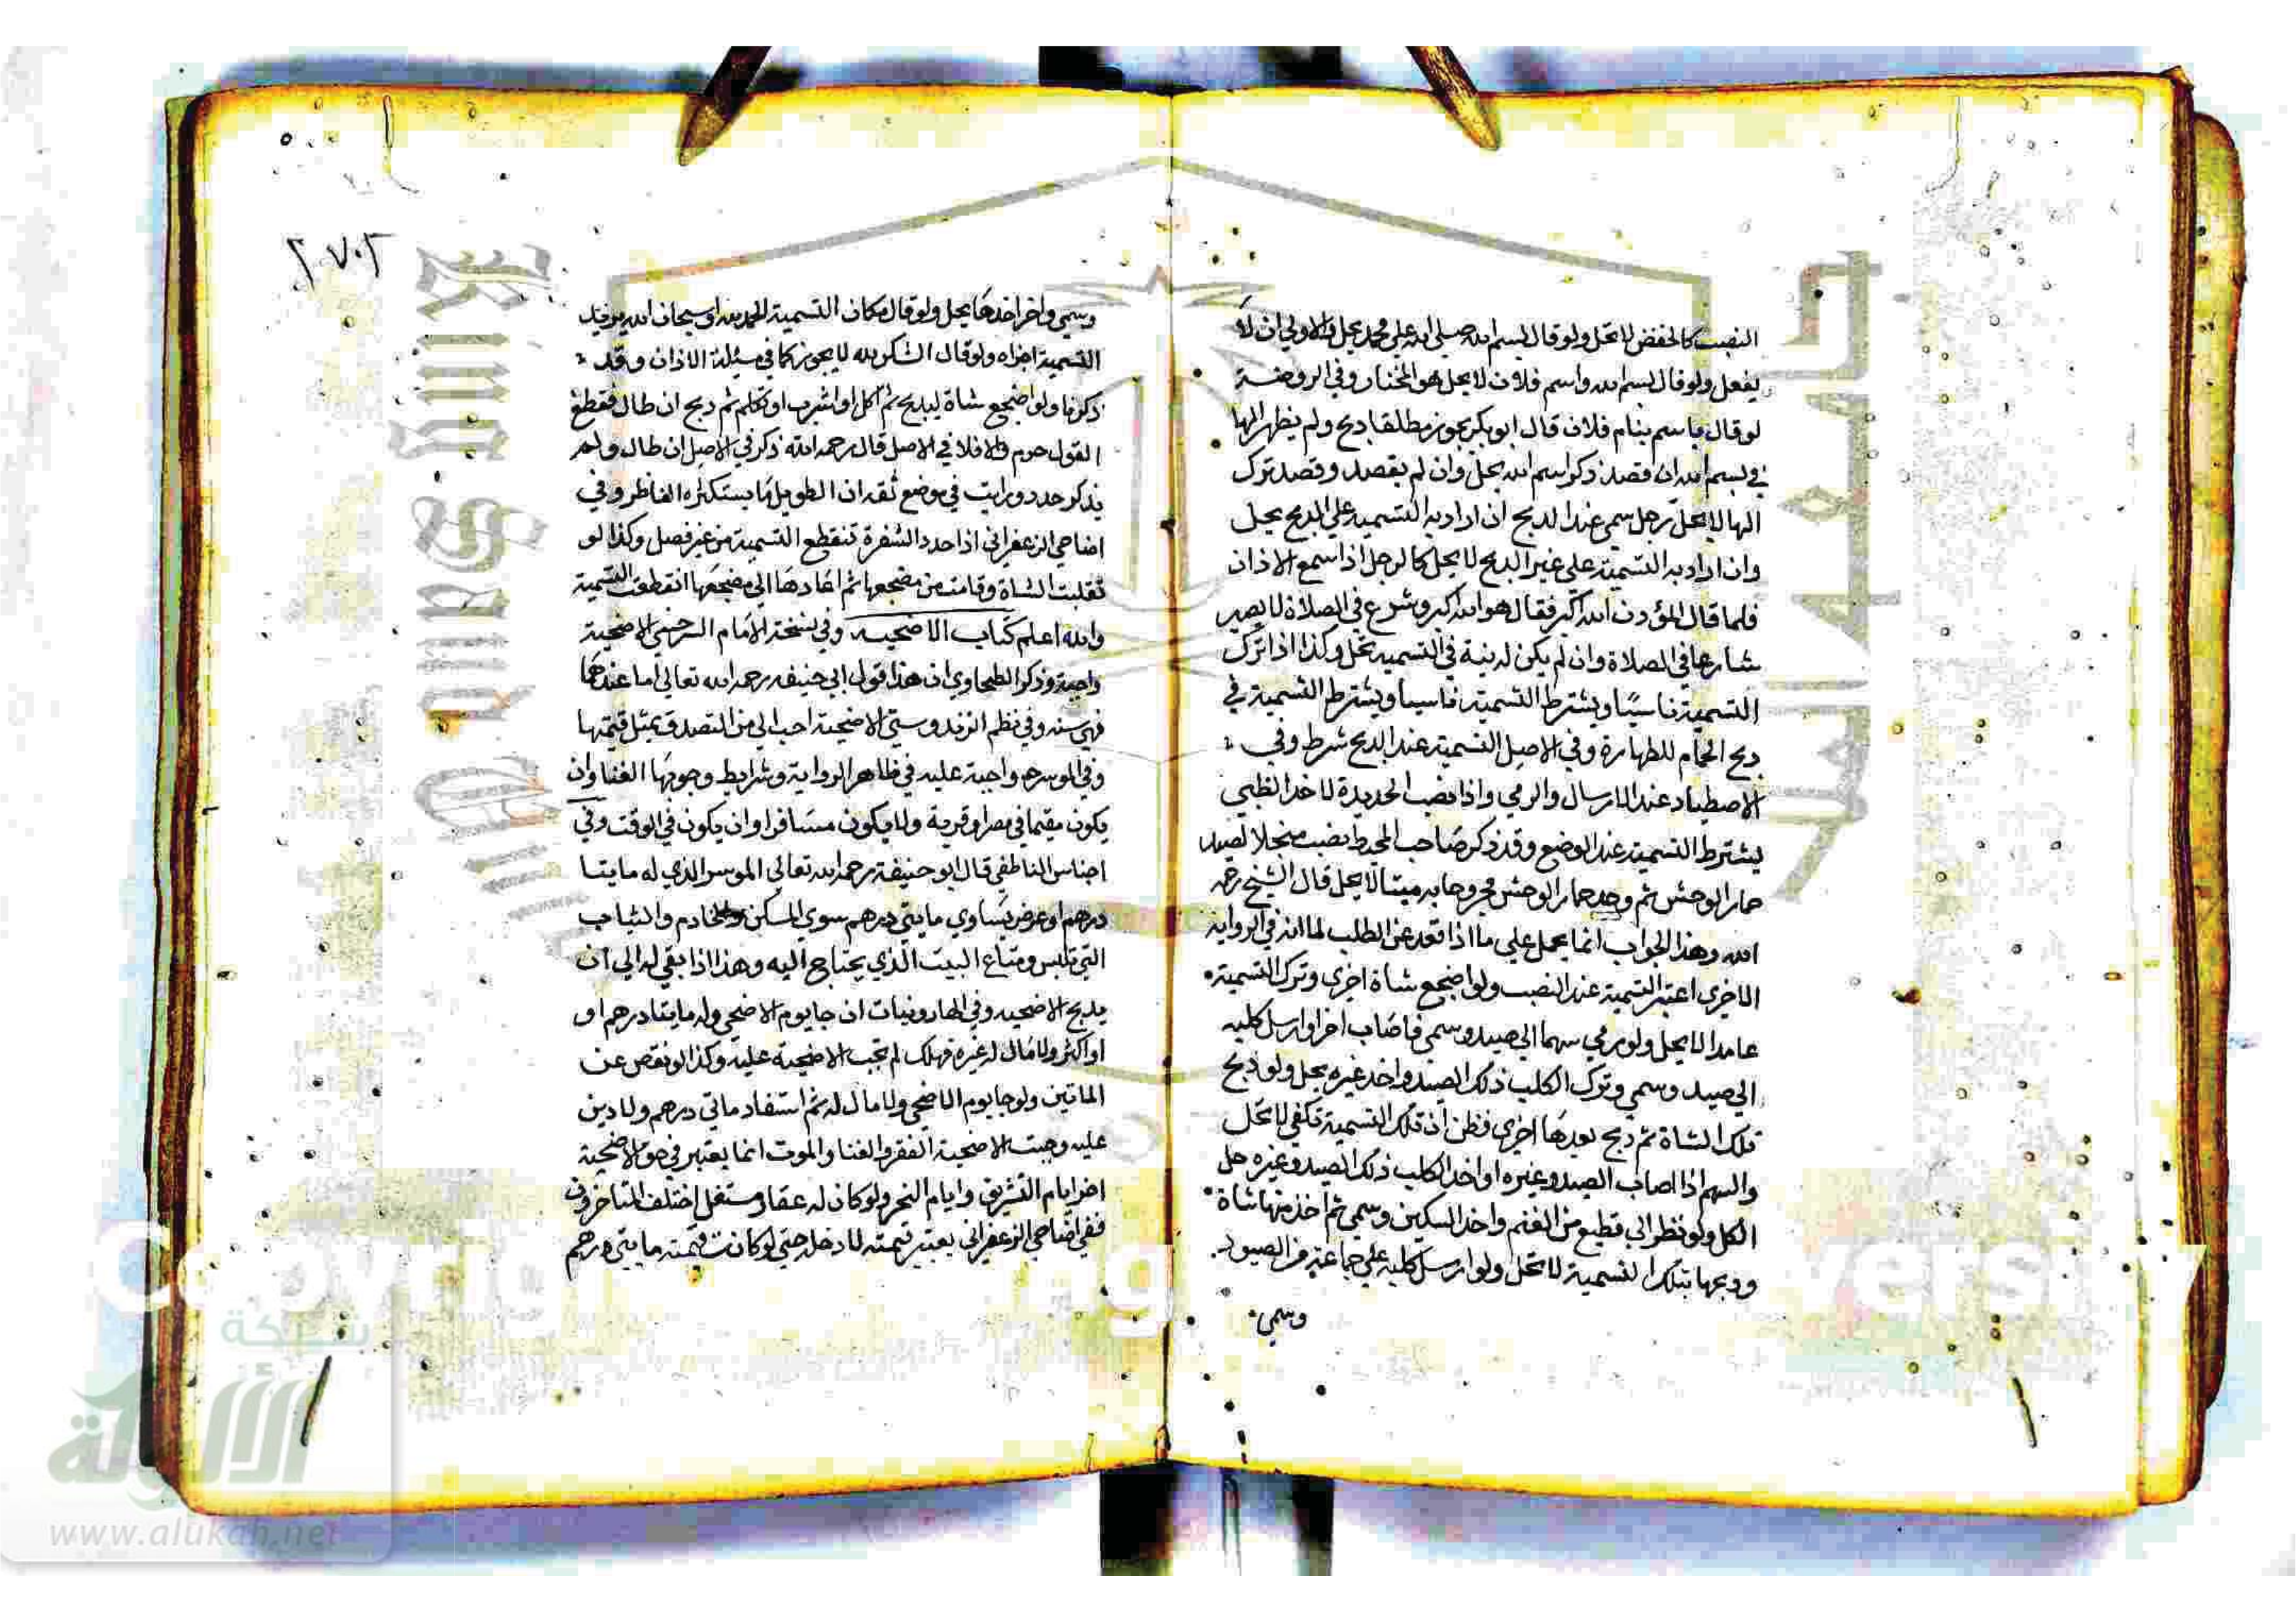 النصب كالخفض لا تحل ولو قال بسم الله صلي الله علي محمد يحل والاولي ان لا
يفعل ولو قال بسم الله واسم فلان لا يحل هو المختار وفي الروضة
لو قال باسم بنام فلان قال ابو بكر يجوز مطلقا ذبح ولم يظهر الها
في بسم الله ان قصد ذكر اسم الله يحل وان لم يقصد وقصد ترك
الها لا يحل رجل سمي عند الذبح ان اراد به التسمية علي الذبح يحل
وان اراد به التسمية علي غير الذبح لا يحل كالرجل اذا سمع الاذان
فلما قال المؤذن الله اكبر فقال هو الله اكبر وشرع في الصلاة لا يصير
شارعا في الصلاة وان لم يكن له نية في التسمية تحل وكذا اذا ترك
التسمية ناسيًا ويشترط التسمية ناسيا ويشترط التسمية في
ذبح الحمام للطهارة وفي الاصل التسمية عند الذبح شرط وفي
الاصطياد عند الارسال والرمي واذا نصب الحديدة لاخذ الظبي
يشترط التسمية عند الوضع وقد ذكر صاحب المحيط نصب منجلا لصيد
حمار الوحش ثم وجد حمار الوحش مجروحا به ميتا لا يحل قال الشيخ رحمه
الله وهذا الجواب انما يحمل علي ما اذا قعد عن الطلب لما انه في الرواية
الاخري اعتبر التسمية عند النصب ولو اضجع شاة اخري وترك التسمية
عامدا لا يحل ولو رمي سهما الي صيد وسمي فاصاب اخر او ارسل كلبه
الي صيد وسمي وترك الكلب ذلك الصيد واخذ غيره يحل ولو ذبح
تلك الشاة ثم ذبح بعدها اخري فظن ان تلك التسمية تكفي لا تحل
والسهم اذا اصاب الصيد وغيره او اخذ الكلب ذلك الصيد وغيره حل
الكل ولو نظر الي قطيع من الغنم واخذ السكين وسمي ثم اخذ منها شاة
وذبحها بتلك التسمية لا تحل ولو ارسل كلبه علي جماعة من الصيود
وسمي
٢٧٠٢
وسمي واخر اخذها يحل ولو قال مكان التسمية الحمد لله او سبحان الله يريد
التسمية اجزاه ولو قال الشكر لله لا يجوز كما في مسئلة الاذان وقد
ذكرنا ولو اضجع شاة ليذبح ثم اكل او شرب او تكلم ثم ذبح ان طال فقطع
القول حرم والا فلا في الاصل قال رحمه الله ذكر في الاصل ان طال ولم
يذكر حده ورايت في موضع ثقة ان الطويل ما يستكثره الناظر وفي
اضاحي الزعفراني اذا حدد الشفرة تنقطع التسمية من غير فصل وكذا لو
تقلبت الشاة وقامت من مضجعها ثم اعادها الي مضجعها انقطعت التسمية
والله اعلم كتاب الاضحية وفي نسخة الامام السرخسي الاضحية
واجبة وذكر الطحاوي ان هذا قول ابي حنيفة رحمه الله تعالي اما عندهما
فهي سنة وفي نظم الزندوستي الاضحية احب الي من التصدق بمثل قيمتها
وفي الموسر واجبة عليه في ظاهر الرواية وشرايط وجوبها الغنا وان
يكون مقيما في مصر او قرية ولا يكون مسافرا وان يكون في الوقت وفي
اجناس الناطفي قال ابو حنيفة رحمه الله تعالي الموسر الذي له مايتا
درهم او عرض يساوي مايتي درهم سوي المسكن والخادم والثياب
التي تلبس ومتاع البيت الذي يحتاج اليه وهذا اذا بقي له الي ان
يذبح الاضحية وفي الهارونيات ان جا يوم الاضحي وله مايتا درهم او
او اكثر ولا مال له غيره فهلك لم تجب الاضحية عليه وكذا لو نقص عن
الماتين ولو جا يوم الاضحي ولا مال له ثم استفاد ماتي درهم ولا دين
عليه وجبت الاضحية الفقر والغنا والموت انما يعتبر في حق الاضحية
اخر ايام التشريق وايام النحر ولو كان له عقار مستغل اختلف المتاخرون
ففي اضاحي الزعفراني يعتبر قيمته لا دخله حتي لو كانت قيمته مايتي درهم
شبكة
الألوكة
www.alukah.net